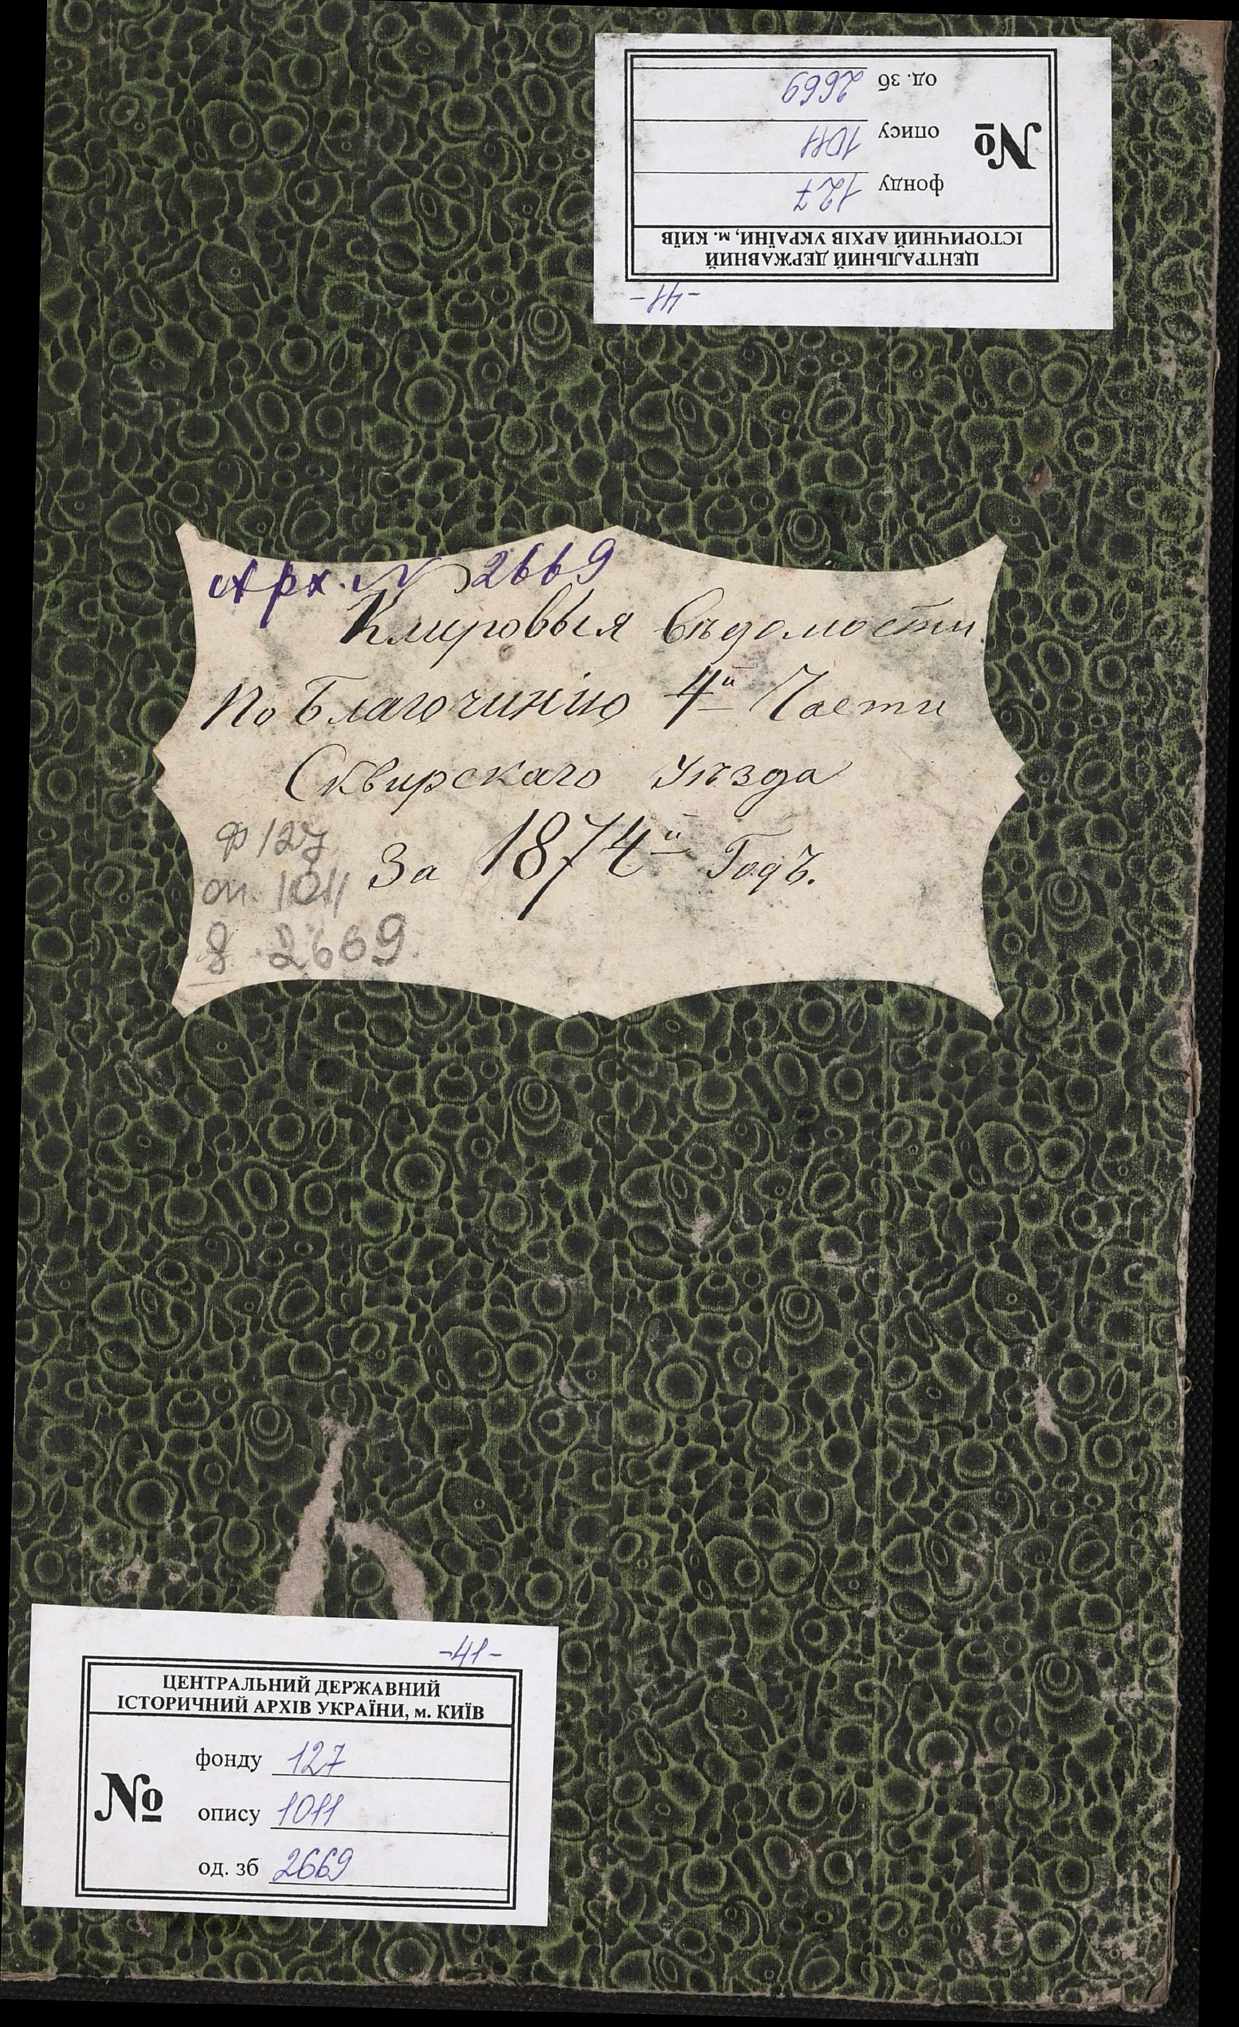 -41-
ЦЕНТРАЛЬНИЙ ДЕРЖАВНИЙ
ІСТОРИЧНИЙ АРХІВ УКРАЇНИ, м. КИЇВ
№
фонду 127
опису 1011
од. зб 2669
Арх. № 2669
Клировыя вѣдомости
По Благочинію 4й Части
Сквирскаго уѣзда
За 1874й Годъ.
ф 127
оп. 1011
д 2669
-41-
ЦЕНТРАЛЬНИЙ ДЕРЖАВНИЙ
ІСТОРИЧНИЙ АРХІВ УКРАЇНИ, м. КИЇВ
№
фонду 127
опису 1011
од. зб 2669